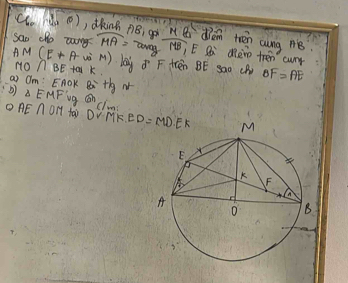 Cho (O), đkính AB, gọi M là điểm trên cung AB
sao cho cung MA = cung MB, E là điểm trên cung
AM (E ≠ A và M). Lấy đ' F trên BE sao cho BF = AE
MO ∩ BE tại K
a) Cm: EAOK là tg nt
b) Δ EMF vg cân
c) AE ∩ OM tại D c/m: MK.ED = MD.EK
M
E
K
F
A
O
B